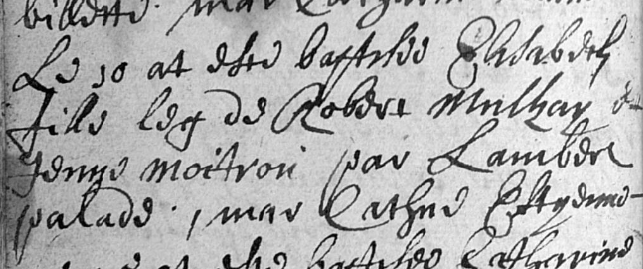 billette. mar
Le 10 at este baptisee Elisabeth
fille leg de Robert Mulkay et
Jenne Moitroú par Lambert
palade. , mar Cathne Estyenne
at este baptisee Catherine